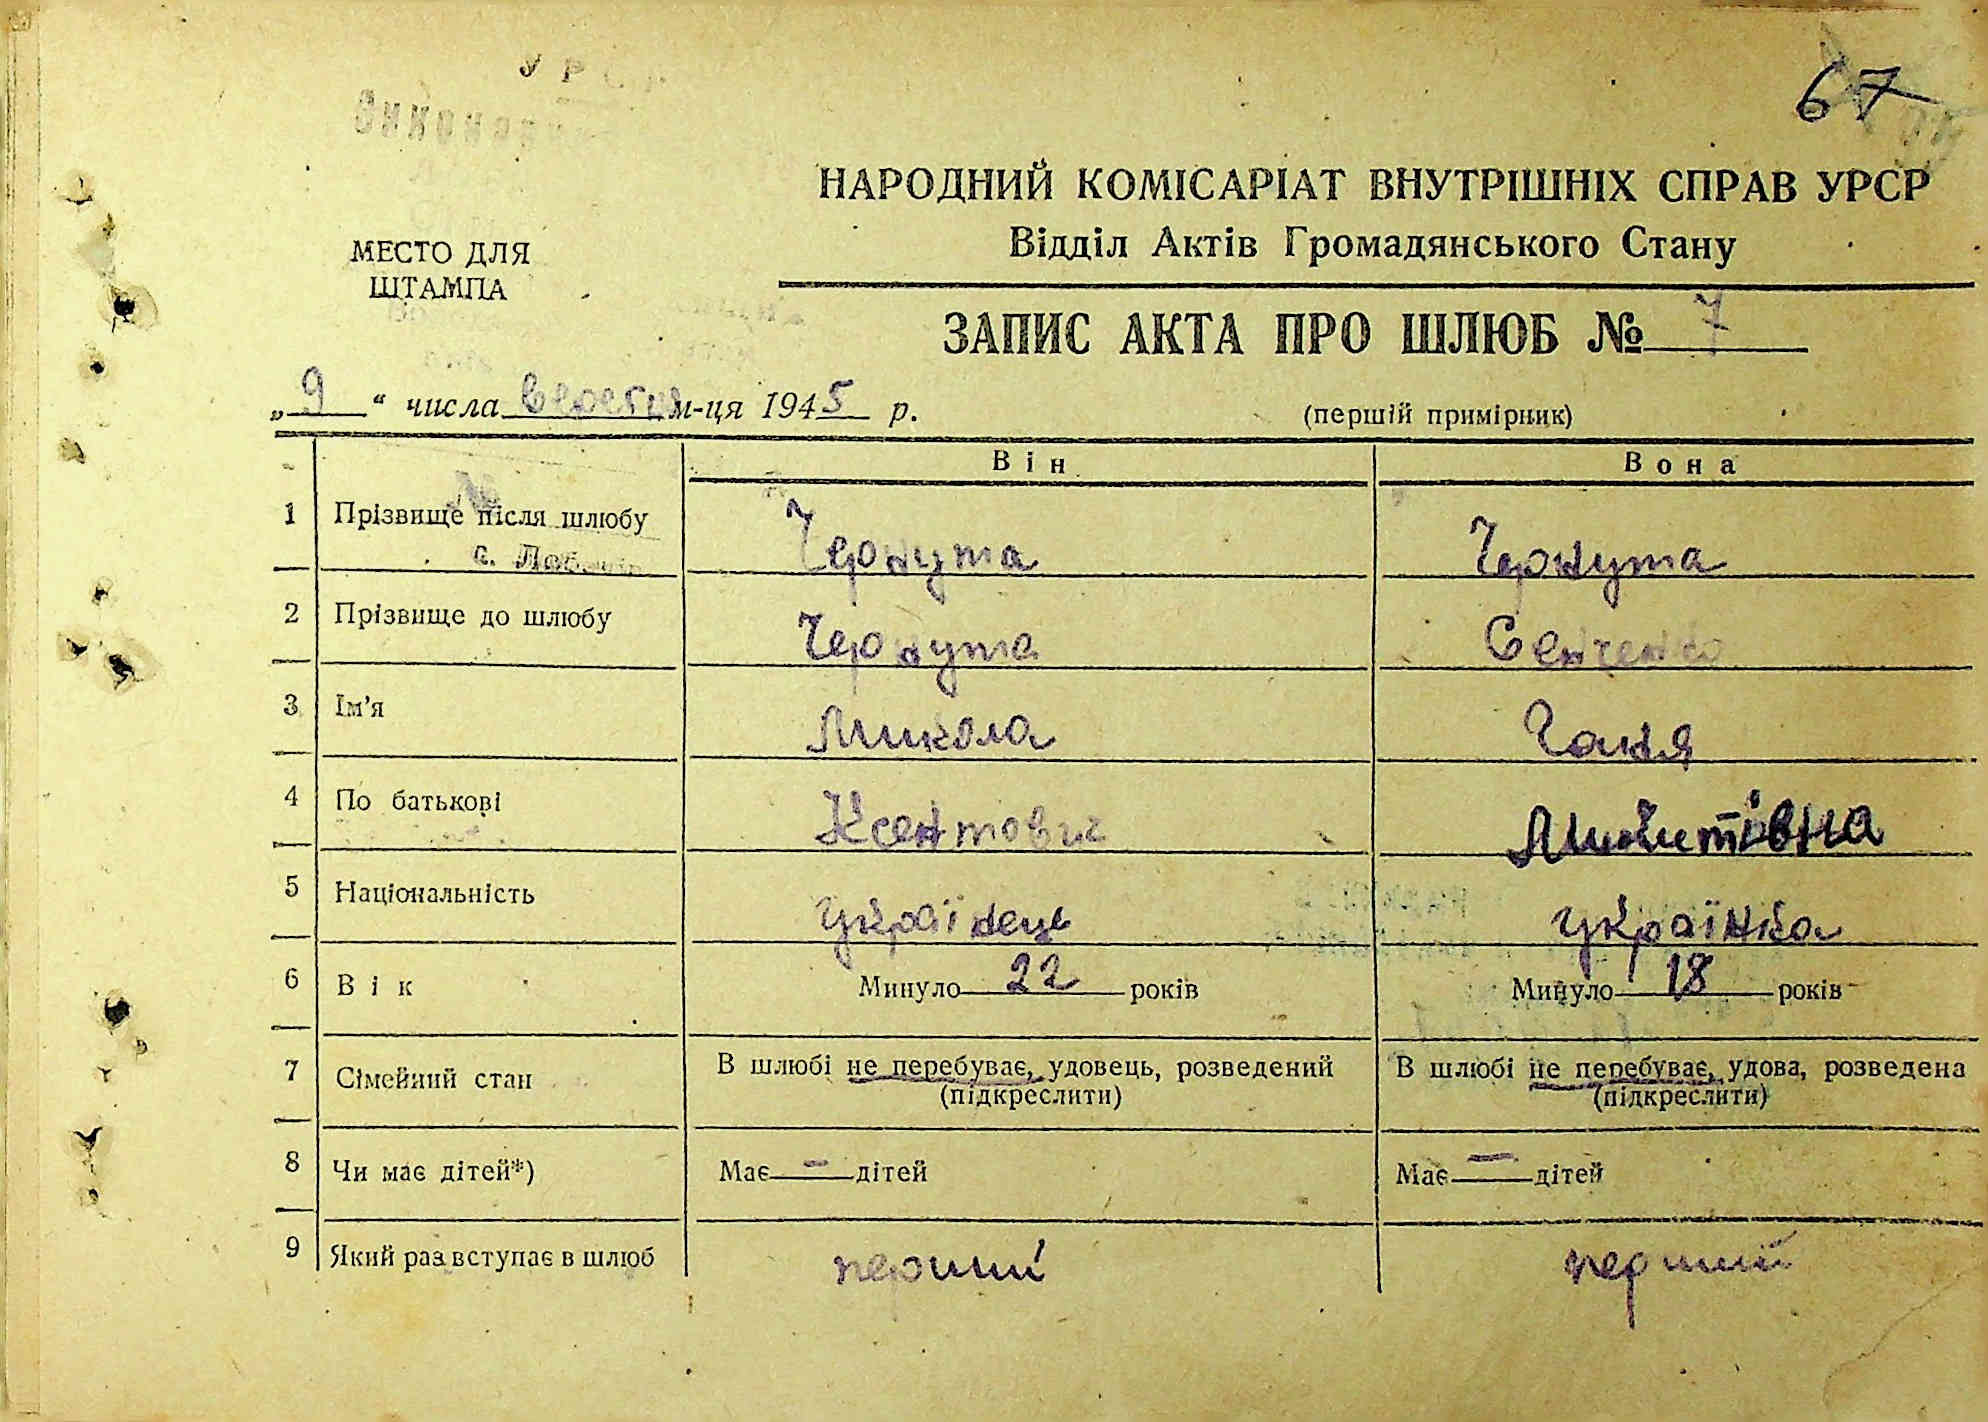 У Р С Р
67
НАРОДНИЙ КОМІСАРІАТ ВНУТРІШНІХ СПРАВ УРСР
Відділ Актів Громадянського Стану
МЕСТО ДЛЯ
ШТАМПА
ЗАПИС АКТА ПРО ШЛЮБ № 7
„9“ числа вересня м-ця 1945 р.
(першій примірник)
Він Вона
1 Прізвище після шлюбу Чернута Чернута
с.
2 Прізвище до шлюбу Чернута Сенченко
3 Ім'я Микола Ганя
4 По батькові Ксентович Микитівна
5 Національність Українець українка
6 Вік Минуло 22 років Минуло 18 років
7 Сімейний стан В шлюбі не перебуває, удовець, розведений В шлюбі не перебуває, удова, розведена
(підкреслити) (підкреслити)
8 Чи має дітей*) Має — дітей Має — дітей
9 Який раз вступає в шлюб перший перший